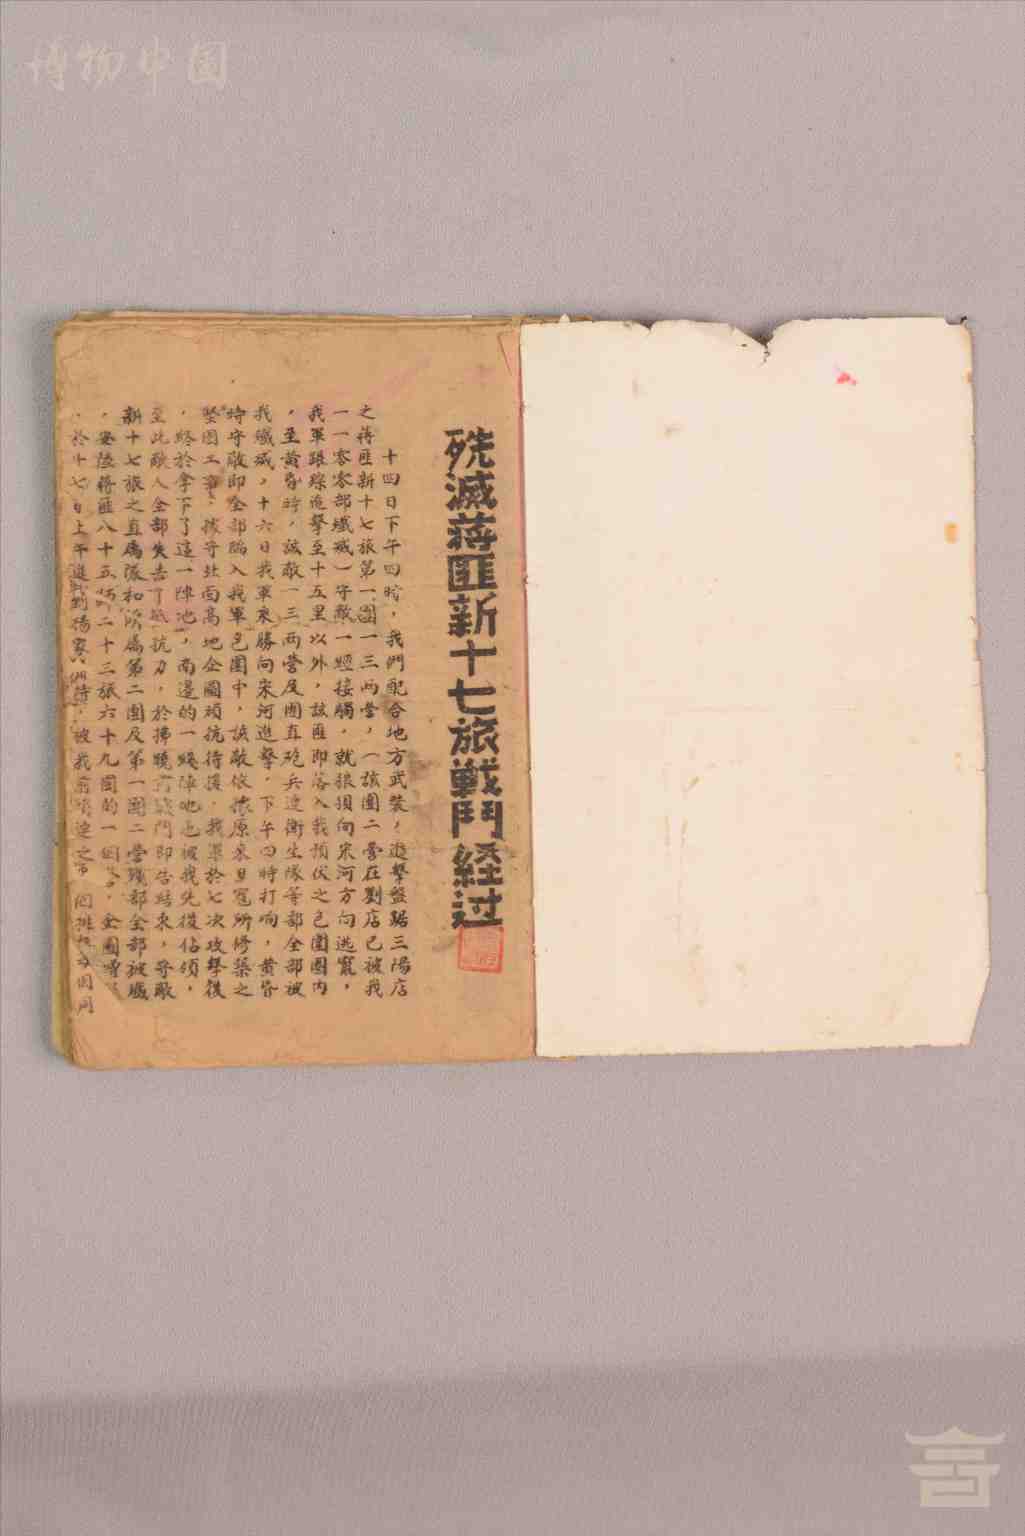 博物中国
殲滅蒋匪新十七旅戰鬥経过
十四日下午四時，我們配合地方武裝，進擊盤踞三陽店
之蒋匪新十七旅第一團一三兩营，（該團二营在劉店已被我
一一零零部殲滅）守敵一經接觸，就狼狽向宋河方向逃竄，
我軍跟踪追擊至十五里以外，該匪即落入我預伏之包圍圈内
，至黄昏時，該敵一三兩营及團直砲兵連衛生隊等部全部被
我殲滅，十六日我軍乘勝向宋河進擊，下午四時打响，黄昏
時守敵即全部陷入我軍包圍中，該敵依據原來日寇所修築之
堅固工事，據守北面高地企圖頑抗待援，我軍於七次攻擊後
，終於拿下了這一陣地，南邊的一線陣地也被我先後佔領，
至此敵人全部失去了抵抗力，於拂曉前戰鬥即告結束，守敵
新十七旅之直属隊和所属第二團及第一團二营殘部全部被殲
，安陸蒋匪八十五師二十三旅六十九團的一個营，企圖增
，於十七日上午進到楊家 時，被我前哨連之 個排